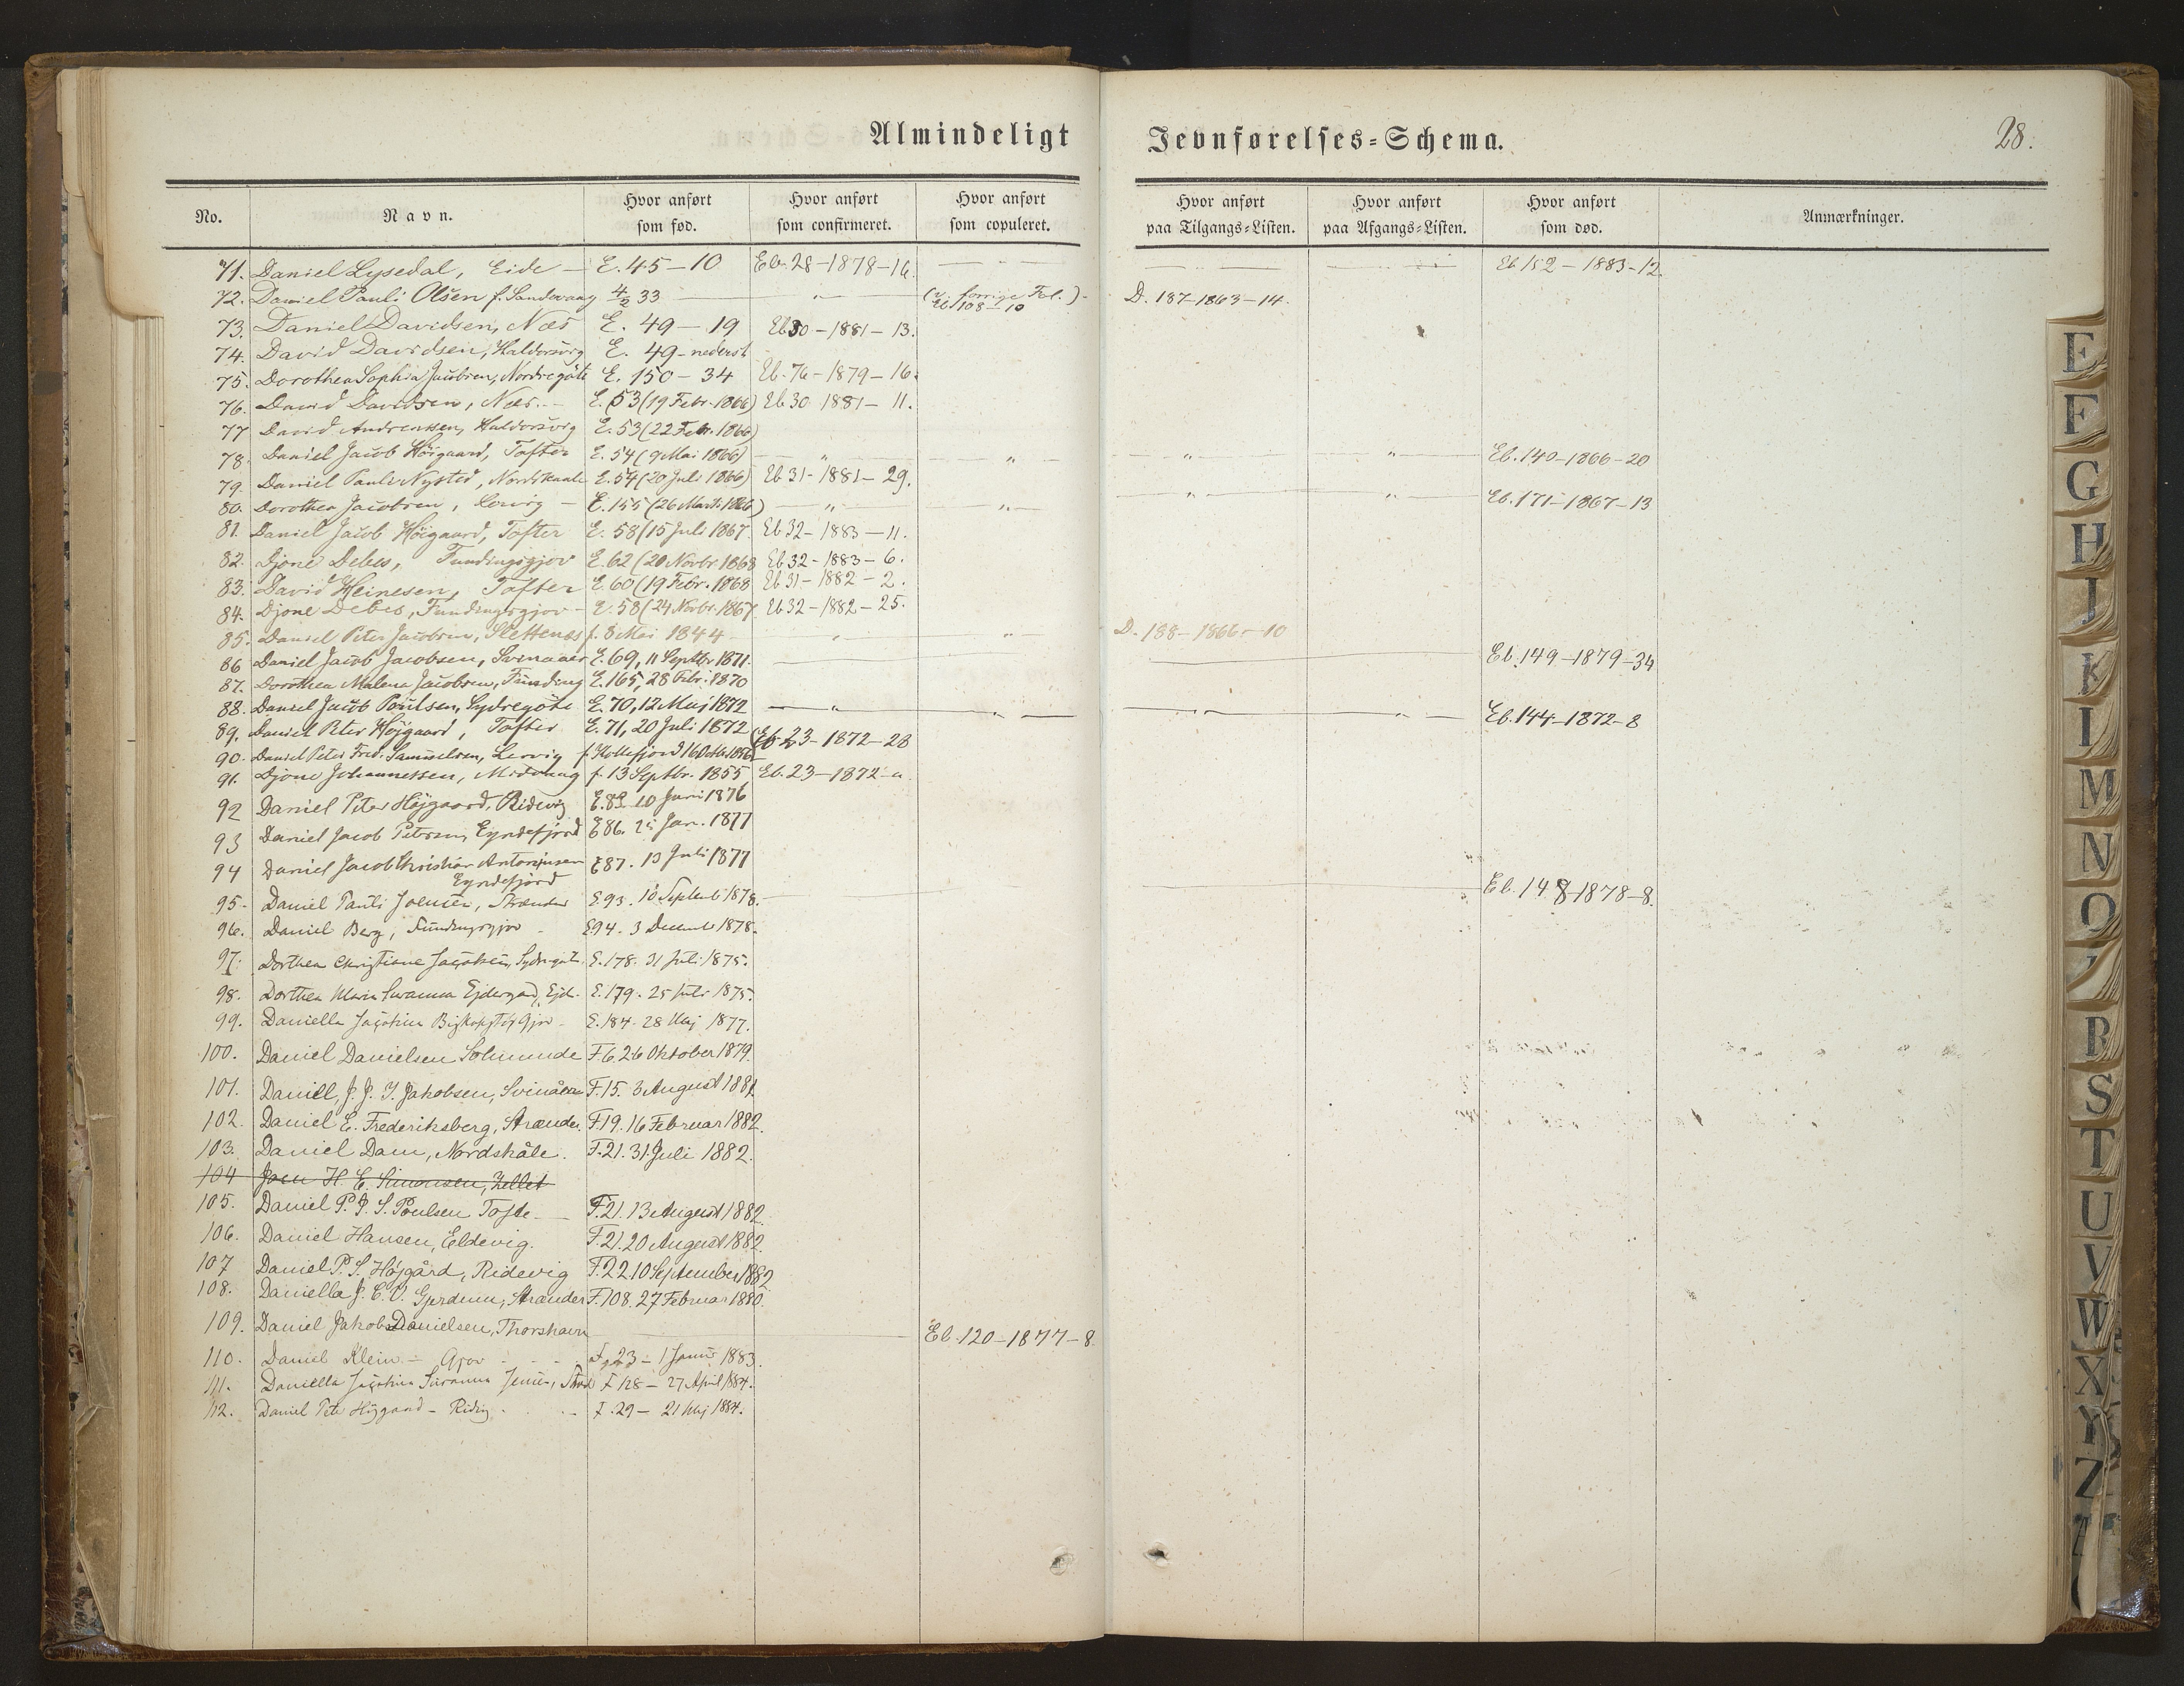 Almindeligt Jevnførelses-Schema.
28.
No. Navn. Hvor anført som fød. Hvor anført som confirmeret. Hvor anført som copuleret. Hvor anført paa Tilgangs-Listen. Hvor anført paa Afgangs-Listen. Hvor anført som død. Anmærkninger.
71. Daniel Lysedal, Eide — E. 45—10 Eb. 28—1878—16. Eb 152—1883—12.
72. Daniel Pauli Olsen f. Sandevaag 4/2 33 — " — (v. forrige Fol.) Eb. 108—10 D. 187—1863—14.
73. Daniel Davidsen, Næs E. 49—19 Eb 30—1881—13.
74. David Davidsen, Haldorsvig E. 49—nederst
75. Dorothea Sophia Jacobsen, Nordregöte E. 150—34 Eb. 76—1879—16.
76. David Davidsen, Næs.— E. 53 (19 Febr. 1866) Eb 30 1881—11.
77 David Andreassen, Haldorsvig E. 53 (22 Febr. 1866)
78. Daniel Jacob Höigaard, Tofter E. 54 (9 Mai 1866) — " — " — " — " — Eb. 140—1866—20
79. Daniel Pauli Nysted, Nordskaale E. 54 (20 Juli 1866) Eb 31—1881—29.
80. Dorothea Jacobsen, Lervig — E. 155 (26 Marts 1866) — " — " — " — " Eb. 171—1867—13
81. Daniel Jacob Höigaard, Tofter E. 58 (15 Juli 1867. Eb 32—1883—11.
82. Djone Debes, Fundingsgjov E. 62 (20 Novbr 1868 Eb 32—1883—6.
83. David Heinesen, Tofter E. 60 (19 Febr. 1868 Eb 31—1882—2.
84. Djone Debes, Fundingsgjov — E. 58 (24 Novbr. 1867. Eb 32—1882—25.
85. Daniel Peter Jacobsen, Slettenæs f. 8 Mai 1844 " " D. 188—1866—10
86 Daniel Jacob Jacobsen, Svinaaer E. 69, 11 Septbr 1871. Eb. 149—1879—34
87. Dorothea Malena Jacobsen, Funding E. 165, 28 Febr. 1870
88. Daniel Jacob Poulsen, Sydregöte E. 70, 12 Maj 1872 — " — " — " — Eb. 144—1872—8
89. Daniel Peter Höjgaard, Tofter E. 71, 20 Juli 1872
90. Daniel Peter Fred. Samuelsen, Lervig f. Kollefjord 16 Octbr. 1856 Eb. 23—1872—28
91. Djone Johannessen, Midvaag f. 13 Septbr. 1855 Eb. 23—1872—a
92 Daniel Peter Höjgaard, Ridevig E. 83 10 Juni 1876
93 Daniel Jacob Petersen, Eyndefjord E 86. 25 Jan. 1877
94 Daniel Jacob Christian Antoniusen Eyndefjord E 87. 13 Juli 1877
95. Daniel Pauli Joensen, Strænder E. 93. 10 Septemb 1878. Eb. 148—1878—8.
96. Daniel Berg, Fundingsgjov — E. 94. 3 Decemb 1878.
97. Dorthea Christiane Jacobsen, Sydregöte. E. 178. 31 Juli 1875.
98. Dorthea Maria Susanna Ejdergard, Ejde. E. 179. 25 Juli 1875.
99. Daniella Jacobina Biskopstø, Gjov — E. 184. 28 Maj 1877.
100. Daniel Danielsen Solmunde F. 6. 26 Oktober 1879.
101. Daniel, J. J. J. Jakobsen, Svinåer F. 15. 3 August 1881.
102. Daniel E. Frederiksberg, Strænder. F. 19. 16 Februar 1882.
103. Daniel Dam, Nordskåle. F. 21. 31 Juli 1882.
104 Joen H. E. Simonsen, Zellet
105. Daniel P. J. S. Poulsen Tofte — F. 21. 13 August 1882.
106. Daniel Hansen, Eldevig. F. 21. 20 August 1882.
107 Daniel P. S. Höjgård, Ridevig F. 22. 10 September 1882
108. Daniella J. E. V. Gjerdum, Strænder F. 108. 27 Februar 1880.
109. Daniel Jakob Danielsen, Thorshavn Eb. 120—1877—8.
110. Daniel Klein — Gjov F. 23 — 1 Januar 1883.
111. Daniella Jacobina Susanna Jensen, Strænd F 128 — 27 April 1884.
112. Daniel Peter Höjgaard — Ridevig F. 29 — 21 Maj 1884.
E
F
G
H
J
K
L
M
N
O
R
S
T
U
V
W
X
Y
Z